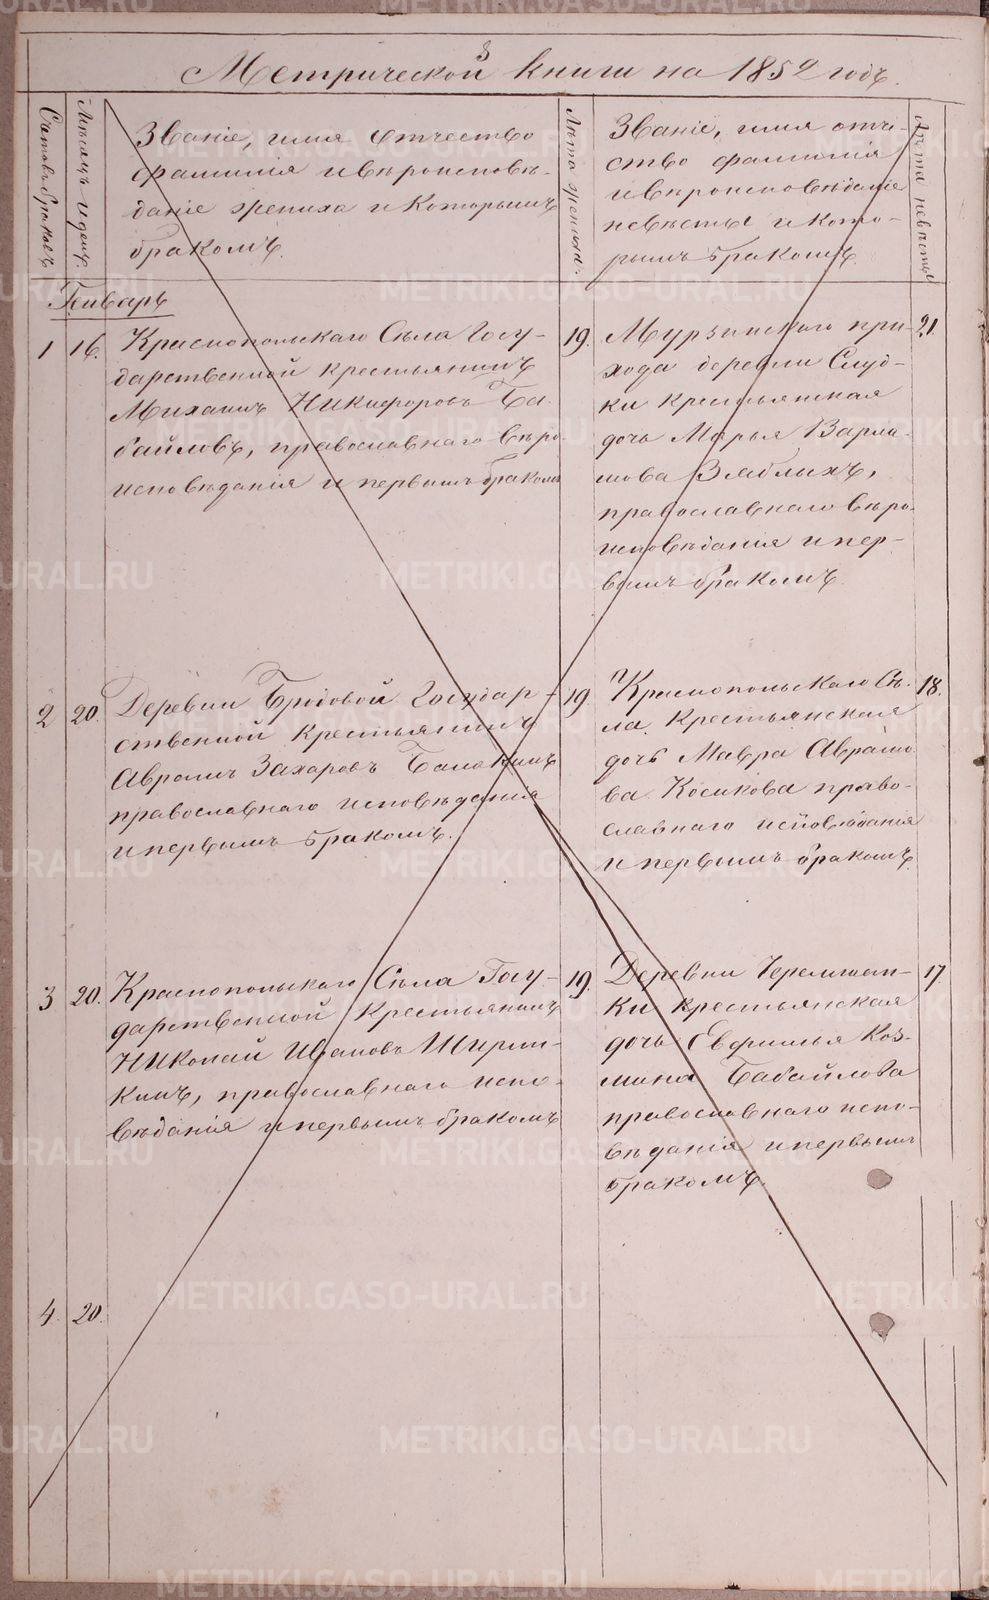 Метрической книги на 1852 годъ.
Счетъ браковъ.
Мѣсяцъ и день.
Званіе, имя отчество
фамилія и вѣроисповѣ-
даніе жениха и которымъ
бракомъ.
Лѣта жениха.
Званіе, имя отче-
ство фамилія
и вѣроисповѣданіе
невѣсты и кото-
рымъ бракомъ.
Лѣта невѣсты
Генварь
1 16.
Краснопольскаго Села Госу-
дарственной крестьянинъ
Михаилъ Никифоровъ Ба-
байловъ, православнаго вѣро
исповѣданія и первымъ бракомъ
19.
Мурзинскаго при-
хода деревни Слуд-
ки крестьянская
дочь Марья Варла-
мова Зяблыхъ,
православнаго вѣро-
исповѣданія и пер-
вымъ бракомъ.
21.
2 20.
Деревни Бродовой Государ-
ственной крестьянинъ
Аврамъ Захаровъ Балакинъ
православнаго исповѣданія
и первымъ бракомъ.
19.
Краснопольскаго Се-
ла крестьянская
дочь Мавра Аврамо
ва Косикова право-
славнаго исповѣданія
и первымъ бракомъ.
18.
3 20.
Краснопольскаго Села Госу-
дарственной крестьянинъ
Николай Ивановъ Ширин-
кинъ, православнаго испо-
вѣданія и первымъ бракомъ
19.
Деревни Черемшан-
ки крестьянская
дочь Евфимья Коз-
мина Бабайлова
православнаго испо-
вѣданія и первымъ
бракомъ.
17.
4. 20.
METRIKI.GASO-URAL.RU